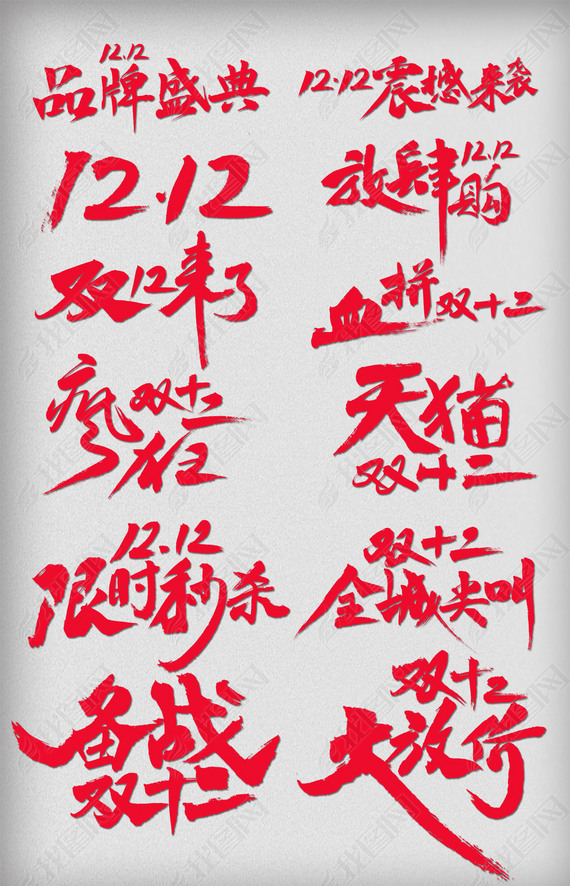 12.12
品牌盛典
12.12震撼来袭
12.12
放肆购12.12
双12来了
血拼双十二
疯狂双十二
天猫
双十二
12.12
限时秒杀
双十二
全城尖叫
备战
双十二
双十二
大放价